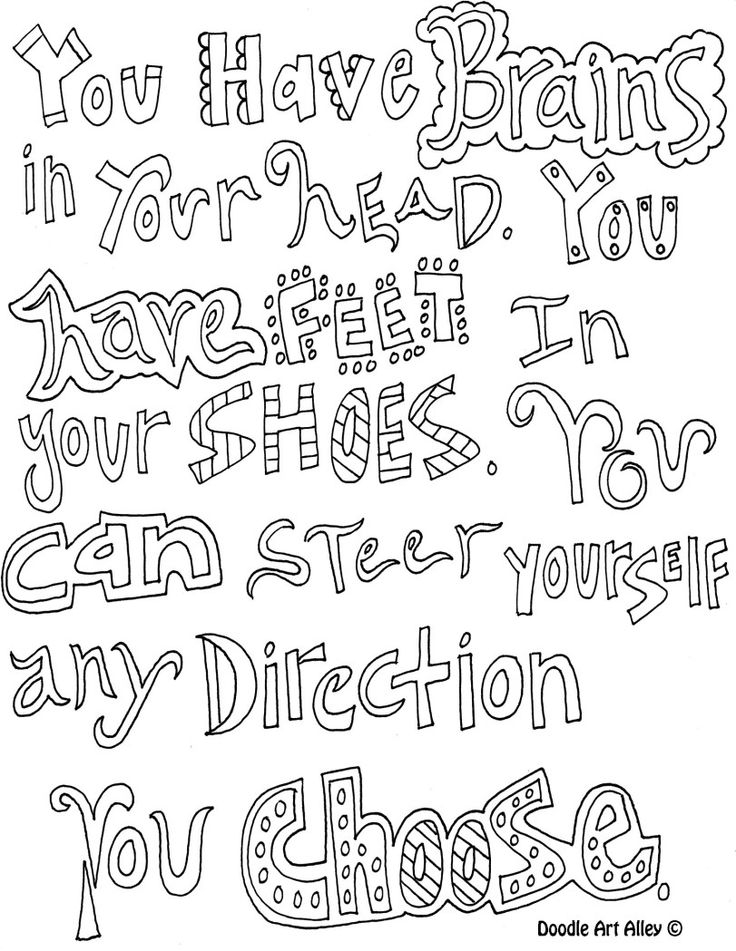 You Have Brains
in Your HEAD. You
have FEET In
your SHOES. You
can STeer YOURSELF
any Direction
You Choose.
Doodle Art Alley ©